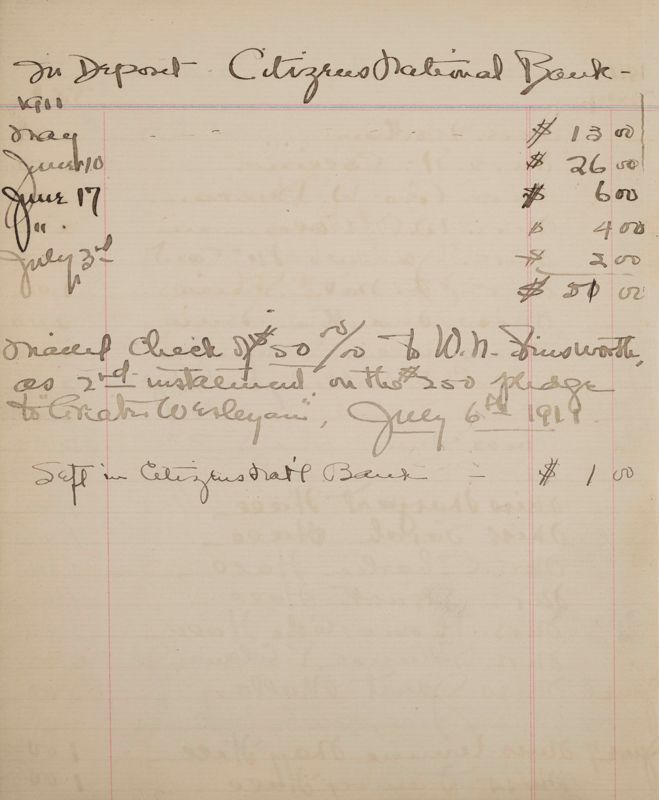 In Deposit Citizens National Bank -
1911
May - - - $ 13 00
June 10 $ 26 00
June 17 $ 6 00
" $ 4 00
July 3rd $ 2 00
$ 51 00
Mailed Check of $50 00/00 to W. N. Ainsworth,
as 2nd instalment on the $250 pledge
to "Greater Wesleyan", July 6th 1911.
Left in Citizens Nat'l Bank - $ 1 00